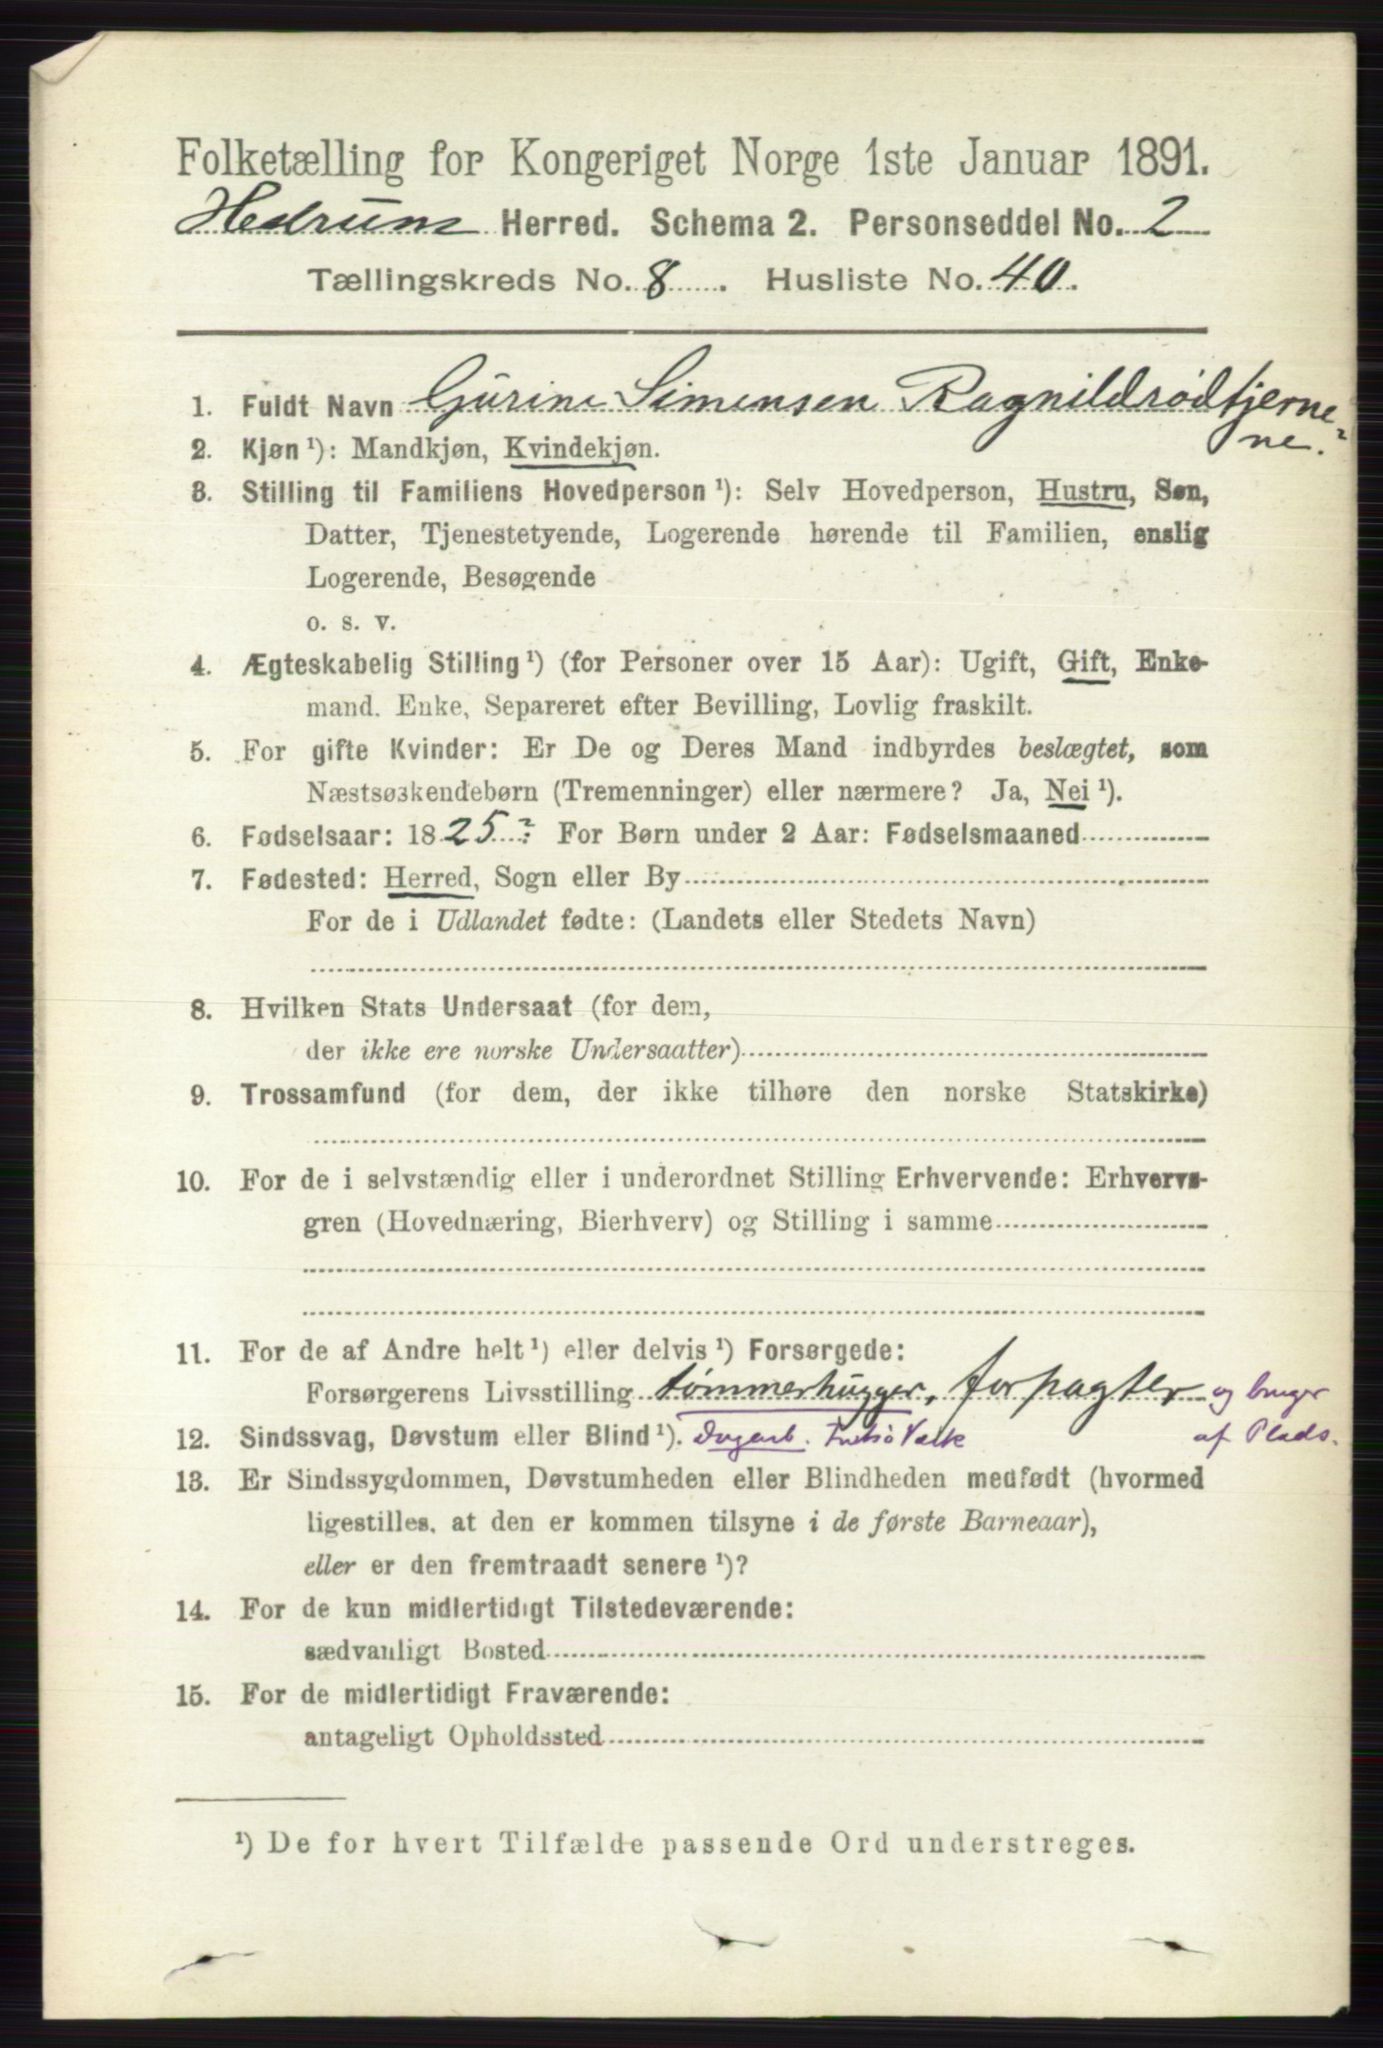 Folketælling for Kongeriget Norge 1ste Januar 1891.
Hedrum Herred. Schema 2. Personseddel No. 2
Tællingskreds No. 8. Husliste No. 40.
1. Fuldt Navn Gurine Simensen Ragnildrødtjerne-
ne.
2. Kjøn ¹): Mandkjøn, Kvindekjøn.
3. Stilling til Familiens Hovedperson ¹): Selv Hovedperson, Hustru, Søn,
Datter, Tjenestetyende, Logerende hørende til Familien, enslig
Logerende, Besøgende
o. s. v.
4. Ægteskabelig Stilling ¹) (for Personer over 15 Aar): Ugift, Gift, Enke-
mand. Enke, Separeret efter Bevilling, Lovlig fraskilt.
5. For gifte Kvinder: Er De og Deres Mand indbyrdes beslægtet, som
Næstsøskendebørn (Tremenninger) eller nærmere? Ja, Nei ¹).
6. Fødselsaar: 1825? For Børn under 2 Aar: Fødselsmaaned
7. Fødested: Herred, Sogn eller By
For de i Udlandet fødte: (Landets eller Stedets Navn)
8. Hvilken Stats Undersaat (for dem,
der ikke ere norske Undersaatter)
9. Trossamfund (for dem, der ikke tilhøre den norske Statskirke)
10. For de i selvstændig eller i underordnet Stilling Erhvervende: Erhvervs-
gren (Hovednæring, Bierhverv) og Stilling i samme
11. For de af Andre helt ¹) eller delvis ¹) Forsørgede:
Forsørgerens Livsstilling tømmerhugger, forpagter og bruger
12. Sindssvag, Døvstum eller Blind ¹). Dagarb. af Plads.
13. Er Sindssygdommen, Døvstumheden eller Blindheden medfødt (hvormed
ligestilles, at den er kommen tilsyne i de første Barneaar),
eller er den fremtraadt senere ¹)?
14. For de kun midlertidigt Tilstedeværende:
sædvanligt Bosted
15. For de midlertidigt Fraværende:
antageligt Opholdssted
¹) De for hvert Tilfælde passende Ord understreges.